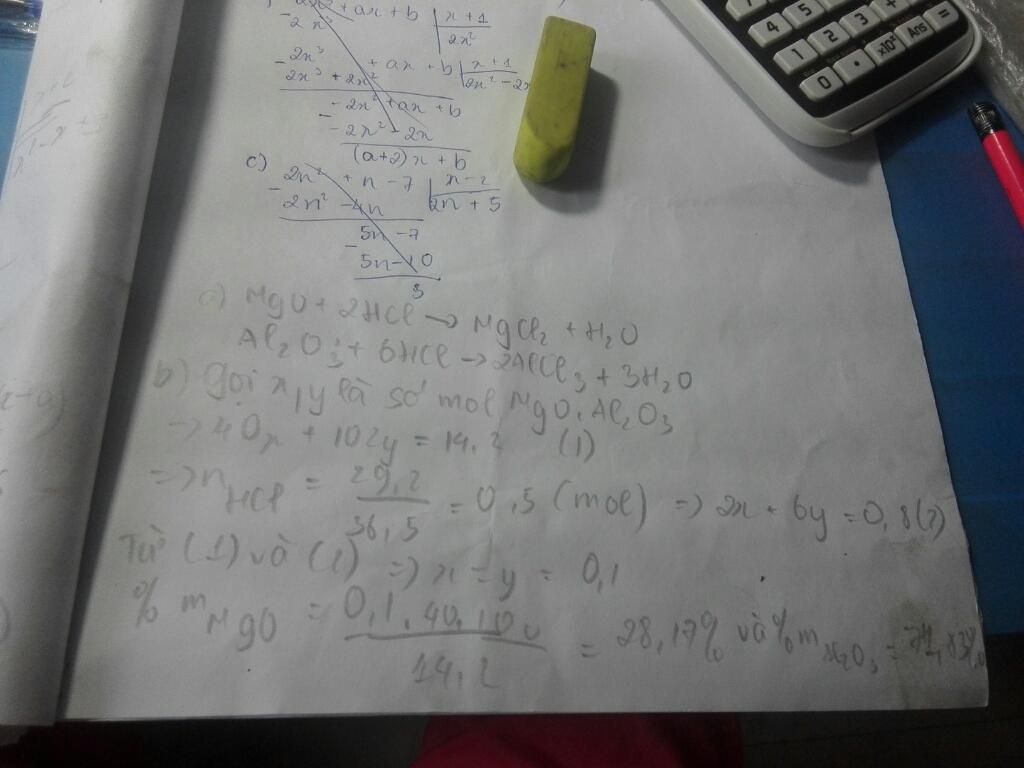 + ax + b | x + 1
- 2x³ | 2x²
- 2x³ + ax + b | x + 1
2x³ + 2x² | 2x² - 2x
- 2x² + ax + b
-
- 2x² - 2x
(a+2)x + b
c) 2n² + n - 7 | x - 2
- 2n² - 4n | 2n + 5
5n - 7
- 5n - 10
3
a) MgO + 2HCl → MgCl₂ + H₂O
Al₂O₃ + 6HCl → 2AlCl₃ + 3H₂O
b) Gọi x, y là số mol MgO, Al₂O₃
→ 40x + 102y = 14,2 (1)
=> nHCl = 29,2 / 36,5 = 0,5 (mol) => 2x + 6y = 0,8 (2)
Từ (1) và (2) => x = y = 0,1
% mMgO = 0,1.40.100 / 14,2 = 28,17% và % m
7 4 5 1 2 3 + 0 . ×10ˣ Ans =